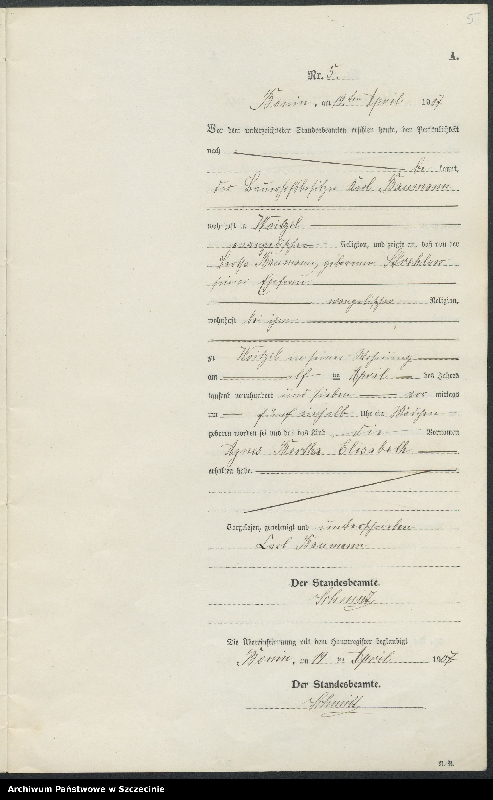 5
A.
Nr. 5.
Bonin, am 19ten April 1907
Vor dem unterzeichneten Standesbeamten erschien heute, der Persönlichkeit
nach
be kannt,
der Bauerhofsbesitzer Carl Baumann
wohnhaft in Woitzel
evangelischer Religion, und zeigte an, daß von der
Bertha Baumann, geborenen
seiner Ehefrau
evangelischer Religion,
wohnhaft bei ihm
zu Woitzel in seiner Wohnung
am elf ten April des Jahres
tausend neunhundert und sieben vor mittags
um fünf einhalb Uhr ein Mädchen
geboren worden sei und daß das Kind die Vornamen
Agnes Bertha Elisabeth
erhalten habe.
Vorgelesen, genehmigt und unterschrieben
Carl Baumann
Der Standesbeamte.
Schmidt
Die Übereinstimmung mit dem Hauptregister beglaubigt
Bonin, am 19 ten April 1907
Der Standesbeamte.
Schmidt
Archiwum Państwowe w Szczecinie